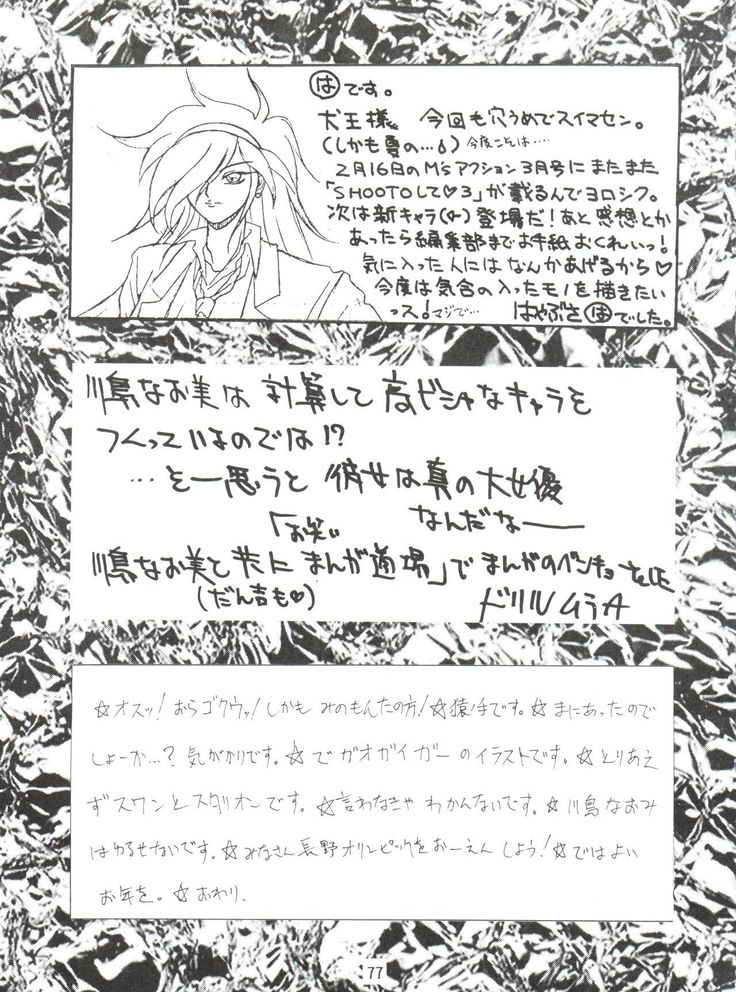 はです。
犬王様 今回も穴うめでスイマセン。
(しかも夏の…)今度こそは…
2月16日のM'sアクション3月号にまたまた
「SHOOTOして♡3」が載るんでヨロシク。
次は新キャラ(♀)登場だ！あと感想とか
あったら編集部までお手紙おくれいっ！
気に入った人にはなんかあげるから♡
今度は気合の入ったモノを描きたい
っス！マジで…
はやぶさはでした。
川島なお美は計算して高ビシャなキャラを
つくっているのでは!?
…と一思うと彼女は真の大女優
なんだなー
「お笑い
川島なお美と共にまんが道場」でまんがのベンキョー
(だん吉も♡)
ドリルムラタ
☆オスッ！おらゴクウッ！しかもみのもんたの方！☆猿手です。☆まにあったので
しょーか…？気がかりです。☆でガオガイガーのイラストです。☆とりあえ
ずスワンとスタリオンです。☆言わなきゃわかんないです。☆川島なおみ
はゆるせないです。☆みなさん長野オリンピックをおーえんしよう！☆ではよい
お年を。☆おわり、
77